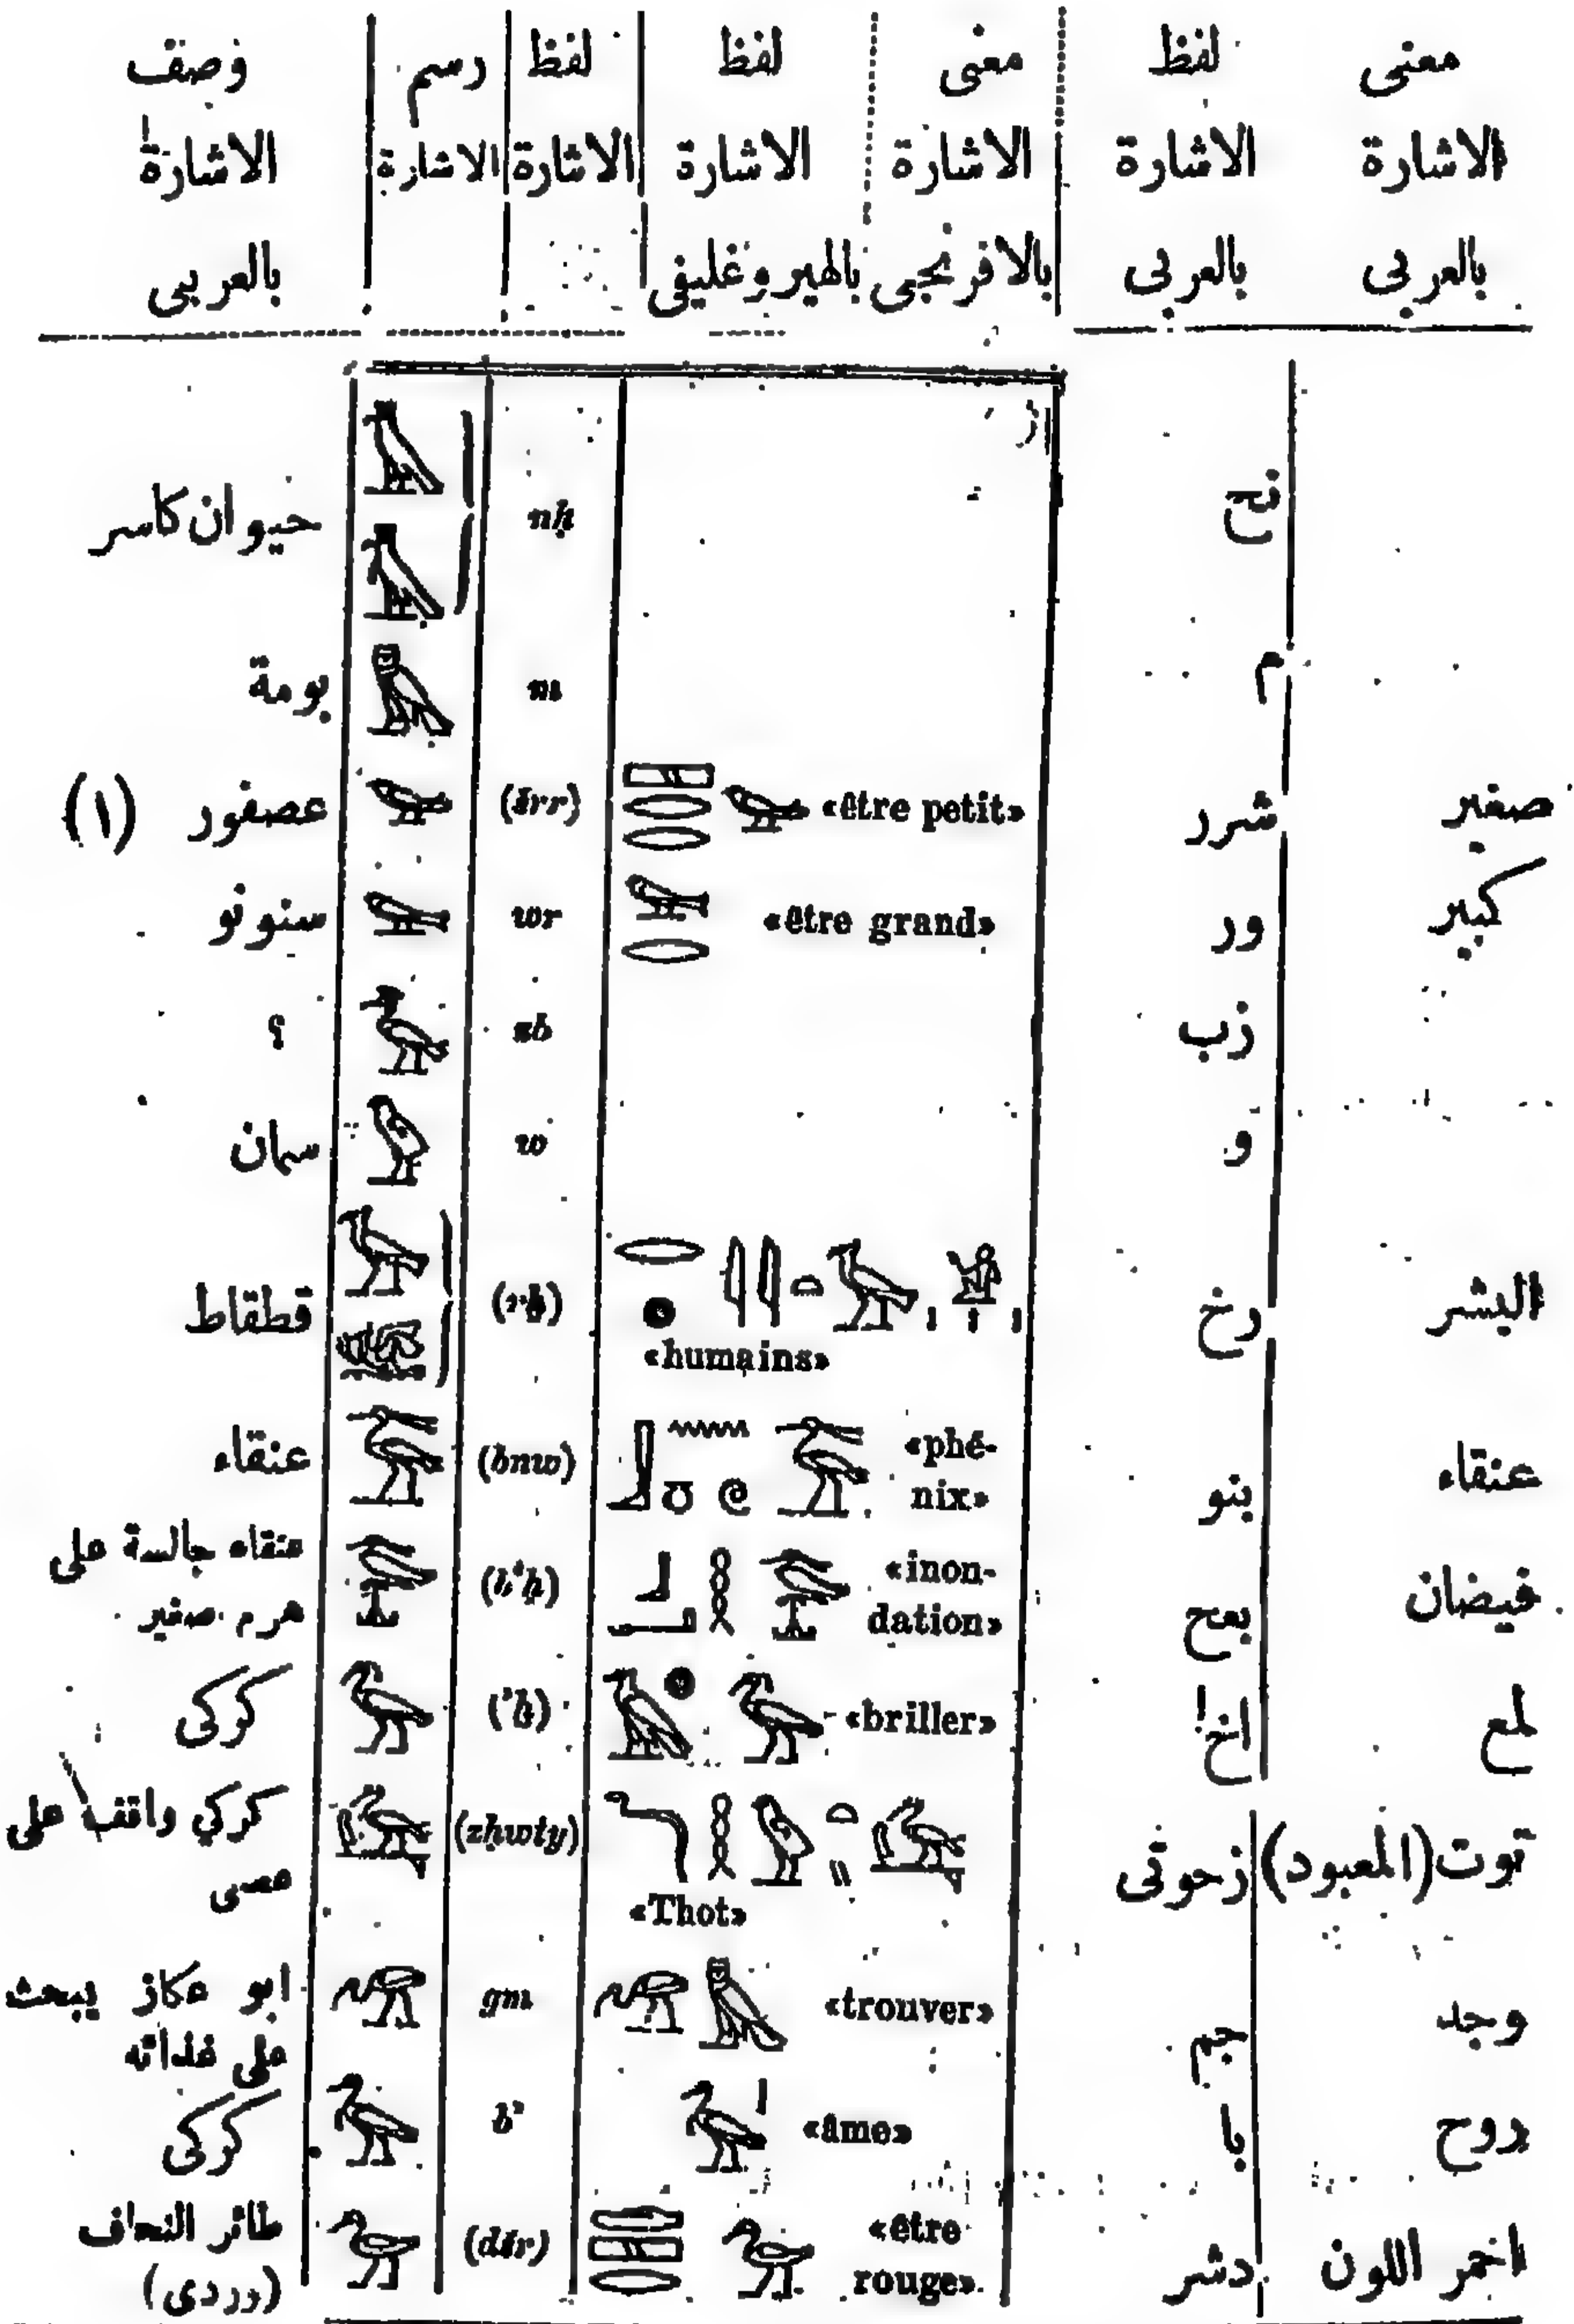 معنى الاشارة بالعربى | لفظ الاشارة بالعربى | معنى الاشارة بالافرنجى | لفظ الاشارة بالهيروغليفى | لفظ الاشارة | رسم الاشارة | وصف الاشارة بالعربى
نح | nḥ | حيوان كاسر
م | m | بومة
صغير | شرر | «être petit» | (šrr) | عصفور (١)
كبير | ور | «être grand» | wr | سنونو
زب | zb | ؟
و | w | سمان
البشر | رخ | «humains» | (rḫ) | قطقاط
عنقاء | بنو | «phé-nix» | (bnw) | عنقاء
فيضان | بعح | «inon-dation» | (bʿḥ) | عنقاء جالسة على هرم صغير
لمع | اخ | «briller» | (ʾḫ) | كركى
توت (المعبود) | زحوتى | «Thot» | (zḥwty) | كركي واقف على عصى
وجد | جم | «trouver» | gm | ابو عكاز يبحث على غذائه
روح | با | «âme» | bʾ | كركى
احمر اللون | دشر | «être rouge» | (dšr) | طائر النحاف (وردى)